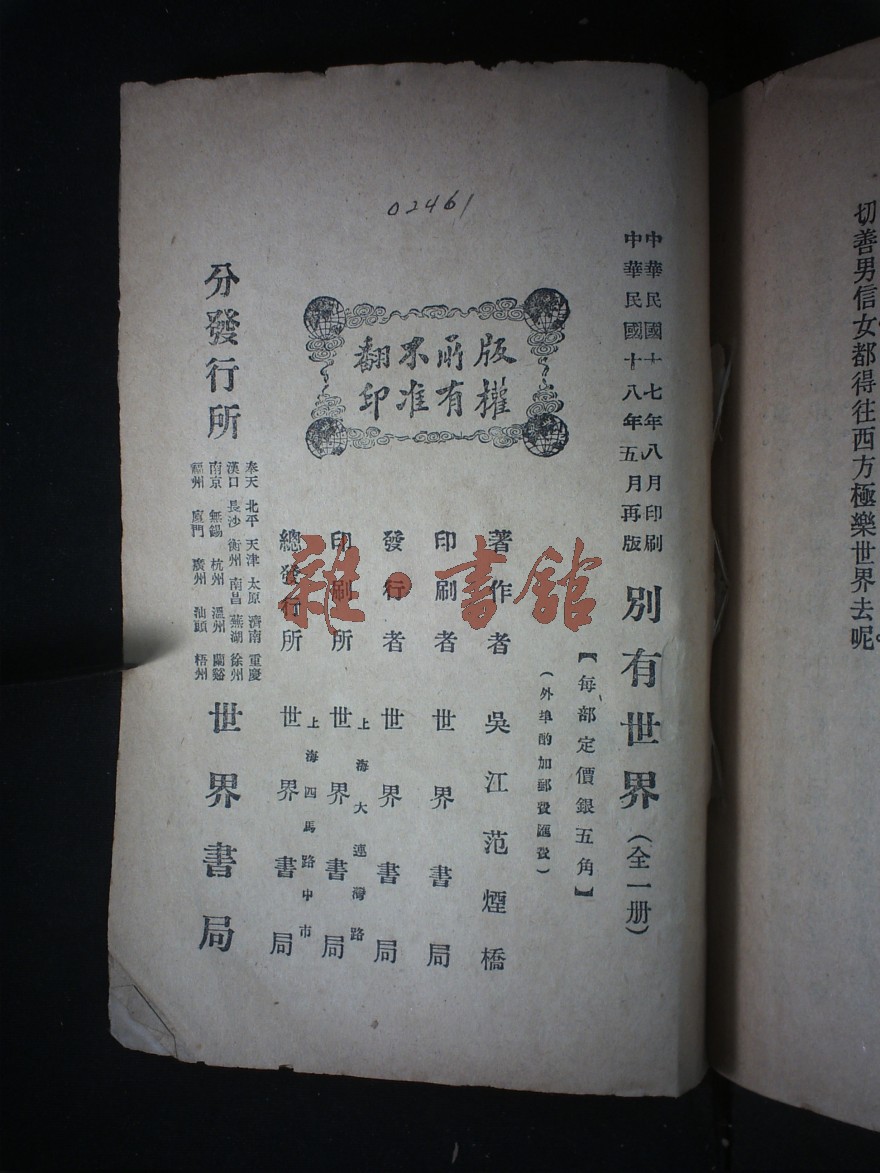 切善男信女都得往西方極樂世界去呢。
02461
中華民國十七年八月印刷
中華民國十八年五月再版
別有世界(全一册)
【每部定價銀五角】
(外埠酌加郵費匯費)
版權
所有
不准
翻印
著作者 吳江范煙橋
印刷者 世界書局
發行者 世界書局
印刷所 上海大連灣路 世界書局
總發行所 上海四馬路中市 世界書局
分發行所
奉天 北平 天津 太原 濟南 重慶
漢口 長沙 衡州 南昌 蕪湖 徐州
南京 無錫 杭州 溫州 蘭谿
福州 廈門 廣州 汕頭 梧州
世界書局
雜·書館